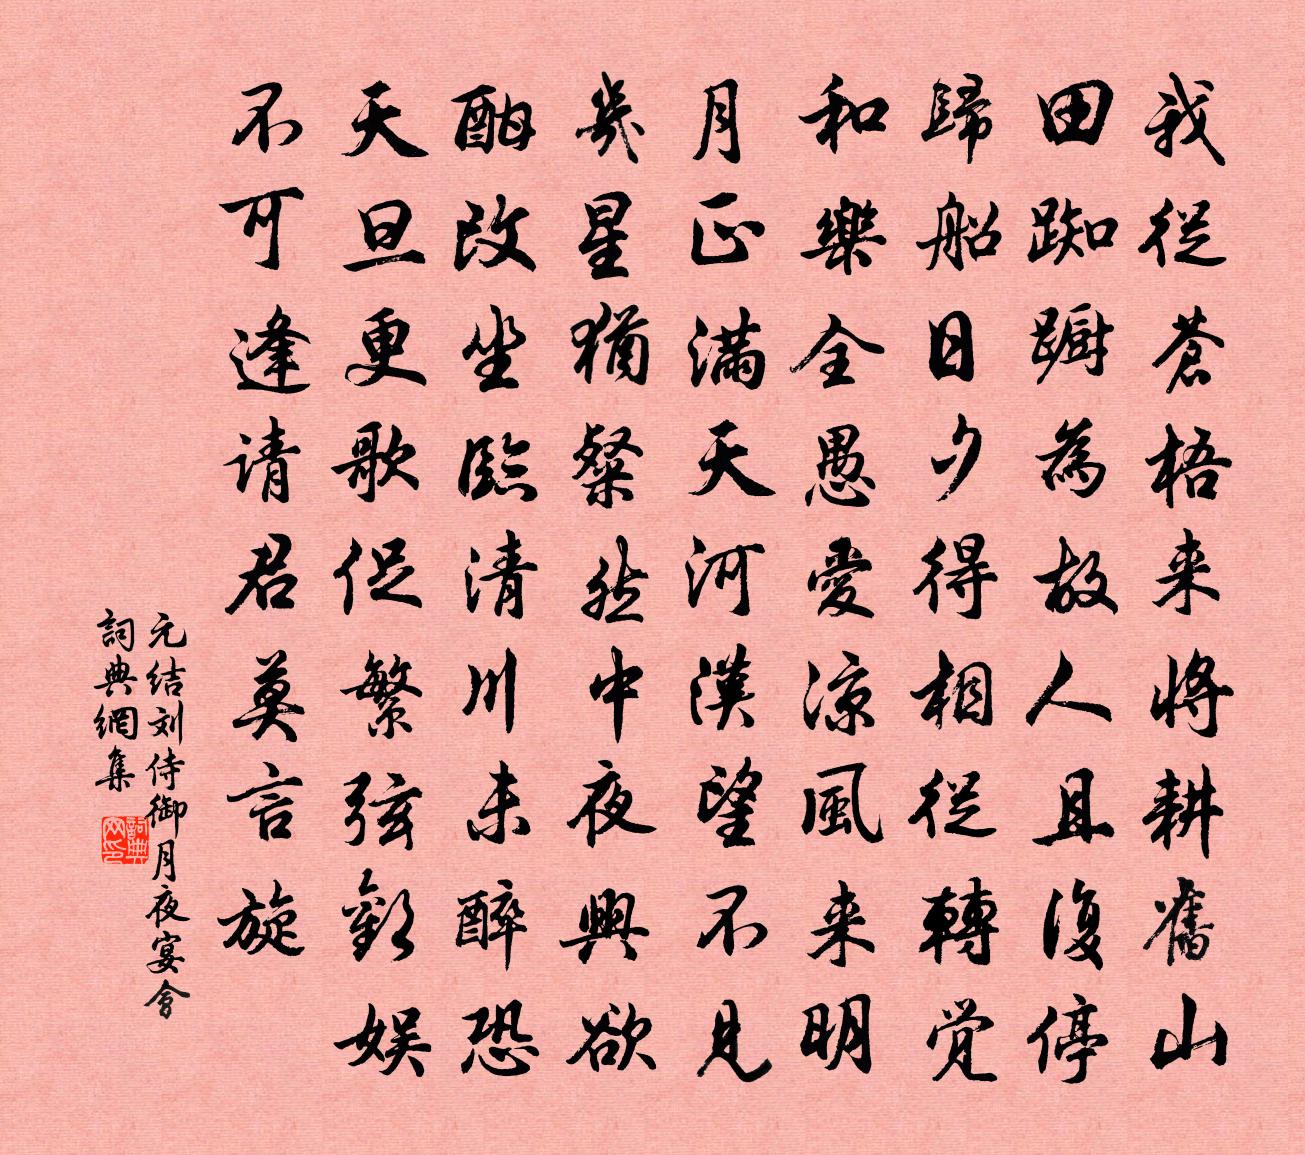 我從蒼梧来將耕舊山
田踟躕為故人且復停
歸船日夕得相從轉覚
和樂全愚愛涼風来明
月正滿天河漢望不見
幾星猶粲然中夜興欲
酣改坐臨清川未醉恐
天旦更歌促繁弦歡娛
不可逢请君莫言旋
元结刘侍御月夜宴會
詞典網集